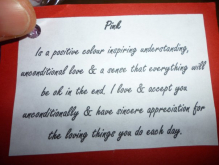 Pink
Is a positive colour inspiring understanding,
unconditional love & a sense that everything will
be ok in the end. I love & accept you
unconditionally & have sincere appreciation for
the loving things you do each day.